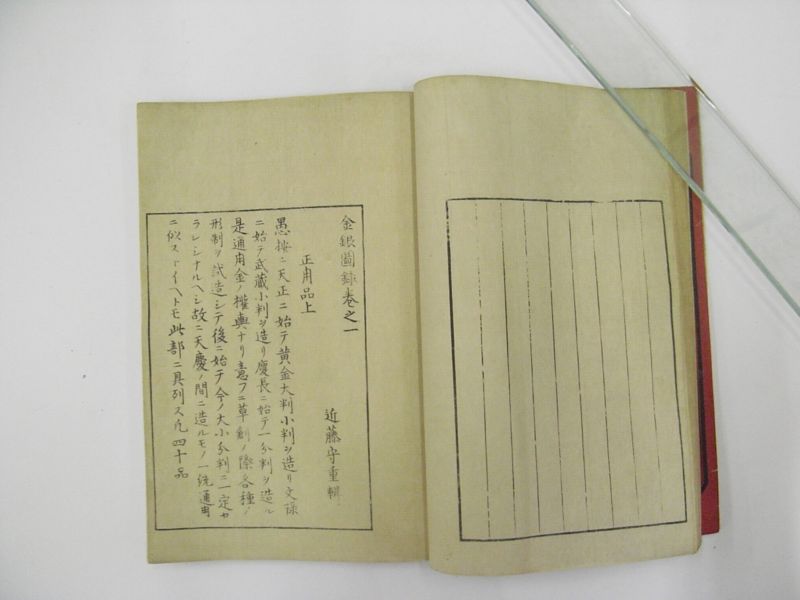 金銀圖録巻之一
近藤守重輯
正用品上
愚按ニ天正ニ始テ黄金大判小判ヲ造リ文禄
ニ始テ武蔵小判ヲ造リ慶長ニ始テ一分判ヲ造ル
是通用金ノ權輿ナリ意フニ草創ノ際各種ノ
形制ヲ試造シテ後ニ始テ今ノ大小分判ニ一定セ
ラレシナルヘシ故ニ天慶ノ間ニ造ルモノ一統通用
ニ似ストイヘトモ此部ニ具列ス凡四十品